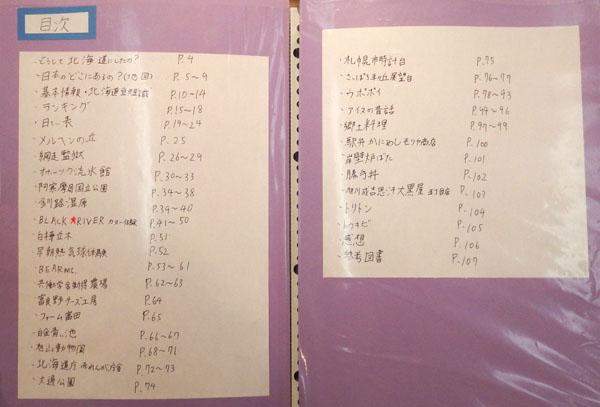 目次
・どうして北海道にしたの? P.4
・日本のどこにあるの?(地図) P.5~9
・基本情報・北海道豆知識 P.10~14
・ランキング P.15~18
・日てい表 P.19~24
・メルヘンの丘 P.25
・網走監獄 P.26~29
・オホーツク流氷館 P.30~33
・阿寒摩周国立公園 P.34~38
・釧路湿原 P.39~40
・BLACK★RIVER カヌー体験 P.41~50
・白樺並木 P.51
・早朝熱気球体験 P.52
・BEAR Mt. P.53~61
・共働学舎新得農場 P.62~63
・富良野チーズ工房 P.64
・ファーム富田 P.65
・白金青い池 P.66~67
・旭山動物園 P.68~71
・北海道庁赤れんが庁舎 P.72~73
・大通公園 P.74
・札幌市時計台 P.75
・さっぽろ羊ヶ丘展望台 P.76~77
・ウポポイ P.78~93
・アイヌの昔話 P.94~96
・郷土料理 P.97~99
・駅弁 かにめし P.100
・岩壁炉ばた P.101
・豚丼 P.102
・旭川成吉思汗大黒屋 五丁目店 P.103
・トリトン P.104
・トウキビ P.105
・感想 P.106
・参考図書 P.107